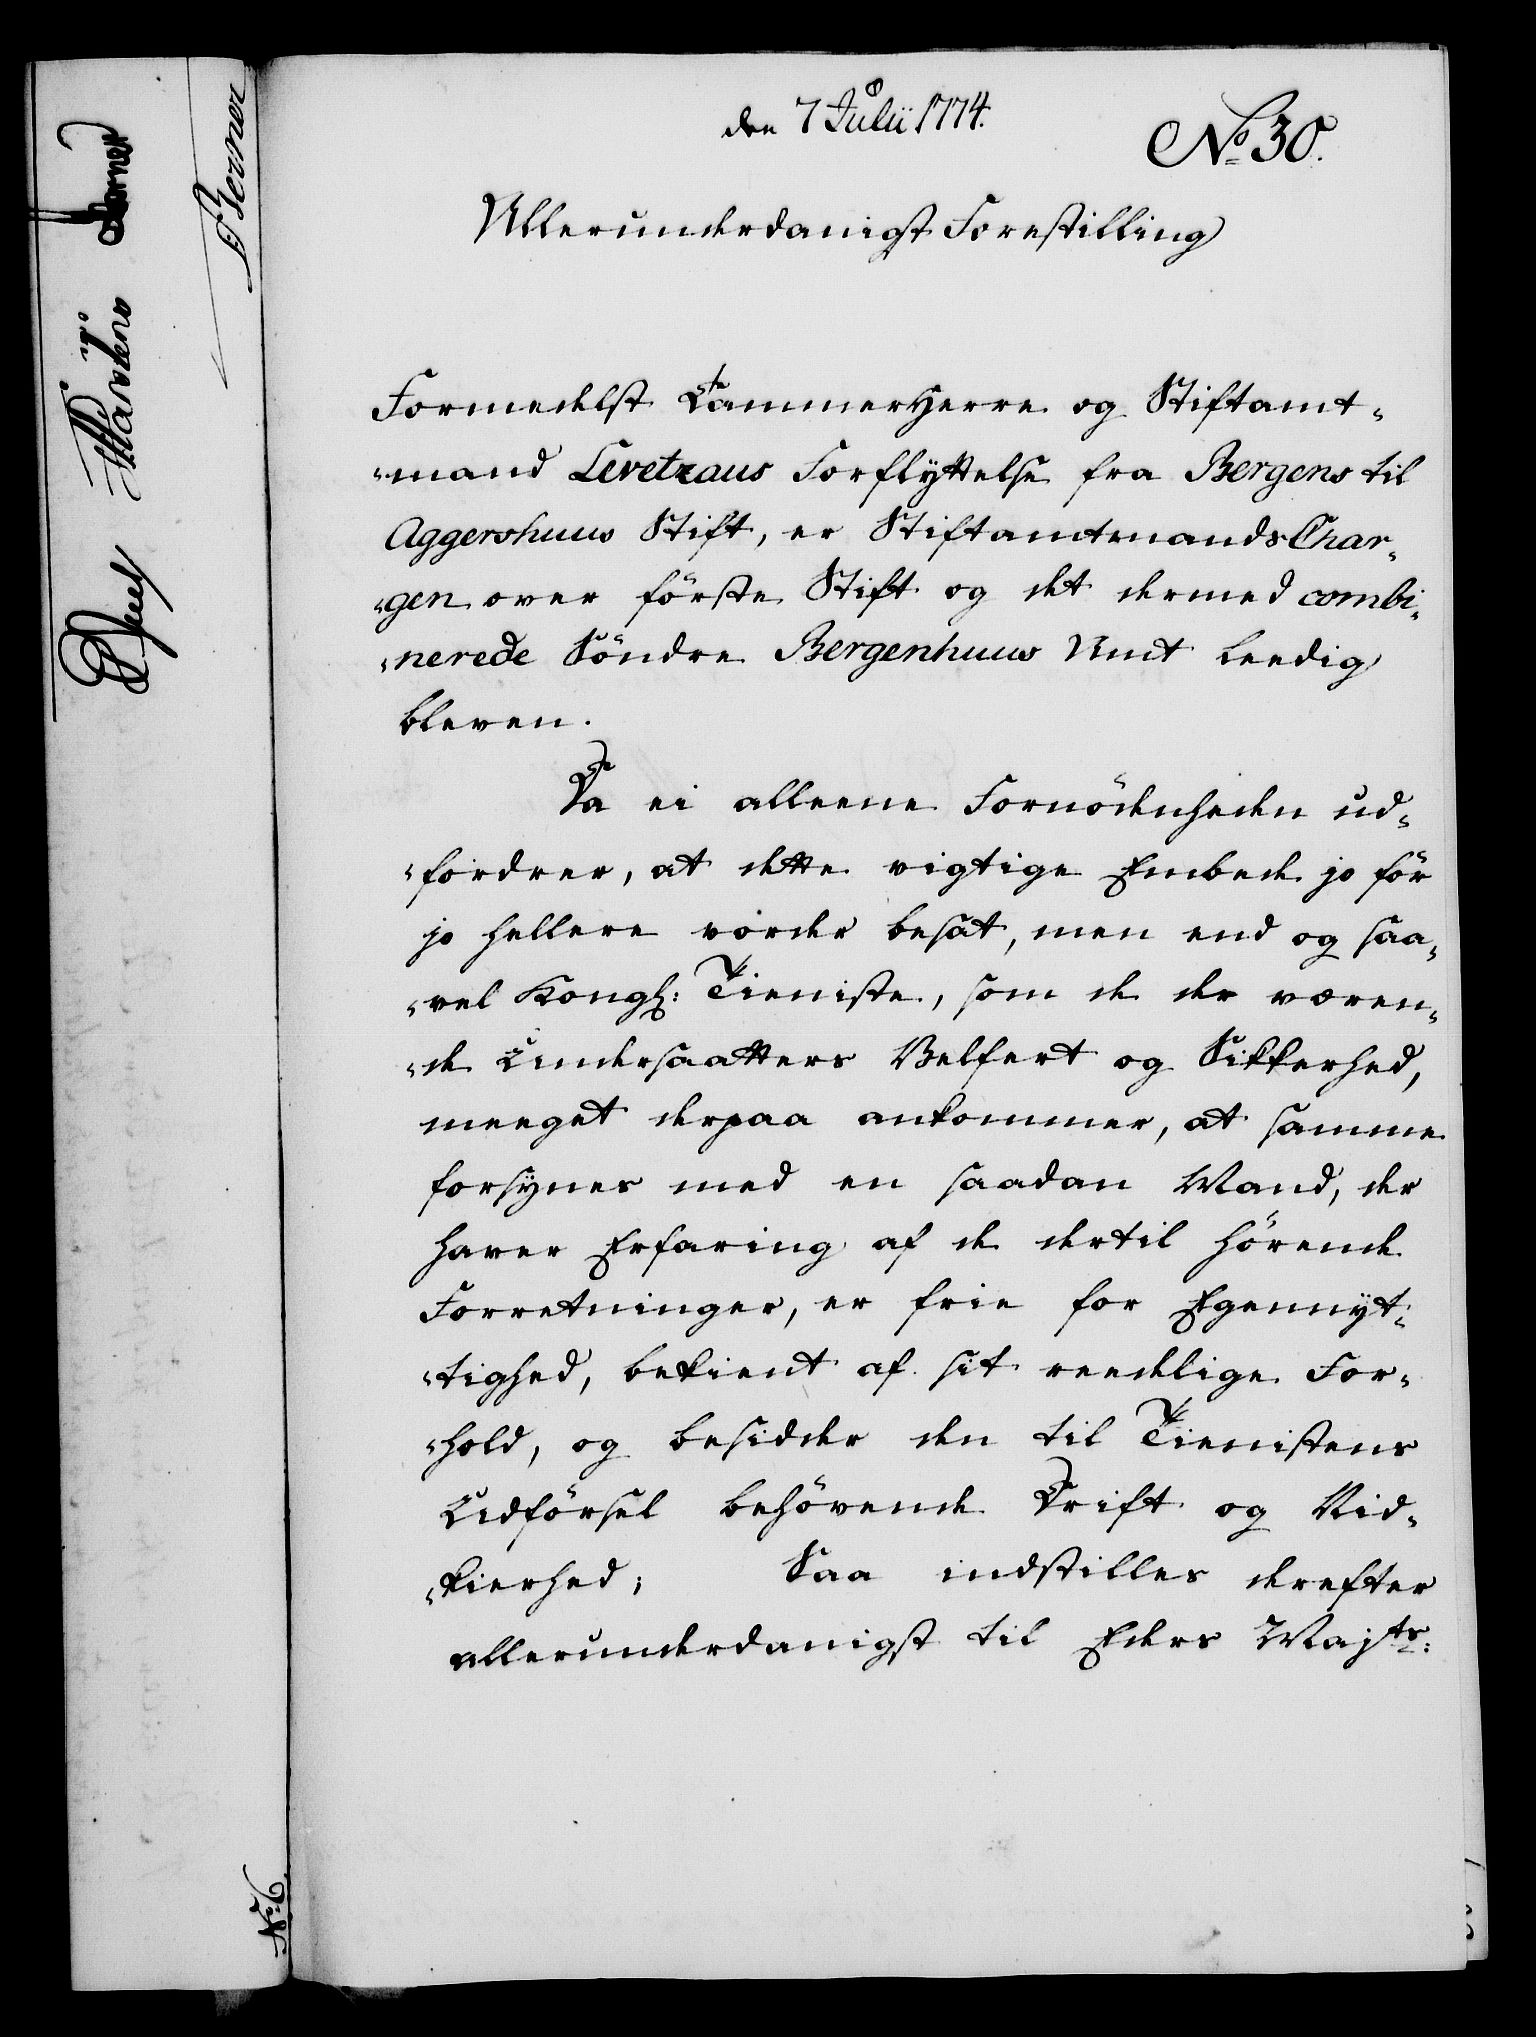 den 7 Julii 1774.
No 30.
Allerunderdanigst Forestilling
Formedelst CammerHerre og Stiftamt-
-mand Levetzaus Forflyttelse fra Bergens til
Aggershuus Stift, er StiftamtmandsChar-
-gen over förste Stift og det dermed combi-
-nerede Söndre Bergenhuus Amt Leedig
bleven.
Da ei alleene Fornödenheden ud-
-fordrer, at dette vigtige Embede jo för
jo hellere vorder besat, men end og saa-
-vel Kongl: Tieniste, som de der væren-
-de Undersaatters Velfert og Sikkerhed,
meeget derpaa ankommer, at samme
forsynes med en saadan Mand, der
haver Erfaring af de dertil hörende
Forretninger, er frie for Egennyt-
-tighed, bekient af sit reedelige For-
-hold, og besidder den til Tienistens
Udförsel behövende Drift og Nid-
-kierhed; Saa indstilles derefter
allerunderdanigst til Eders Majts:
No 6.